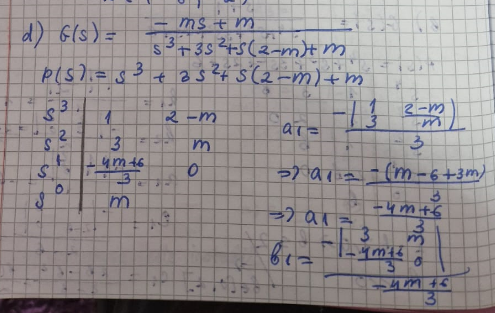 d) G(s) = (-ms + m) / (s³ + 3s² + s(2-m) + m)
P(s) = s³ + 3s² + s(2-m) + m
s³ | 1 2-m
s² | 3 m
s¹ | (-4m+6)/3 0
s⁰ | m
a₁ = -| 1 2-m ; 3 m | / 3
=> a₁ = -(m - 6 + 3m) / 3
=> a₁ = (-4m+6) / 3
b₁ = -| 3 m ; (-4m+6)/3 0 | / ((-4m+6)/3)